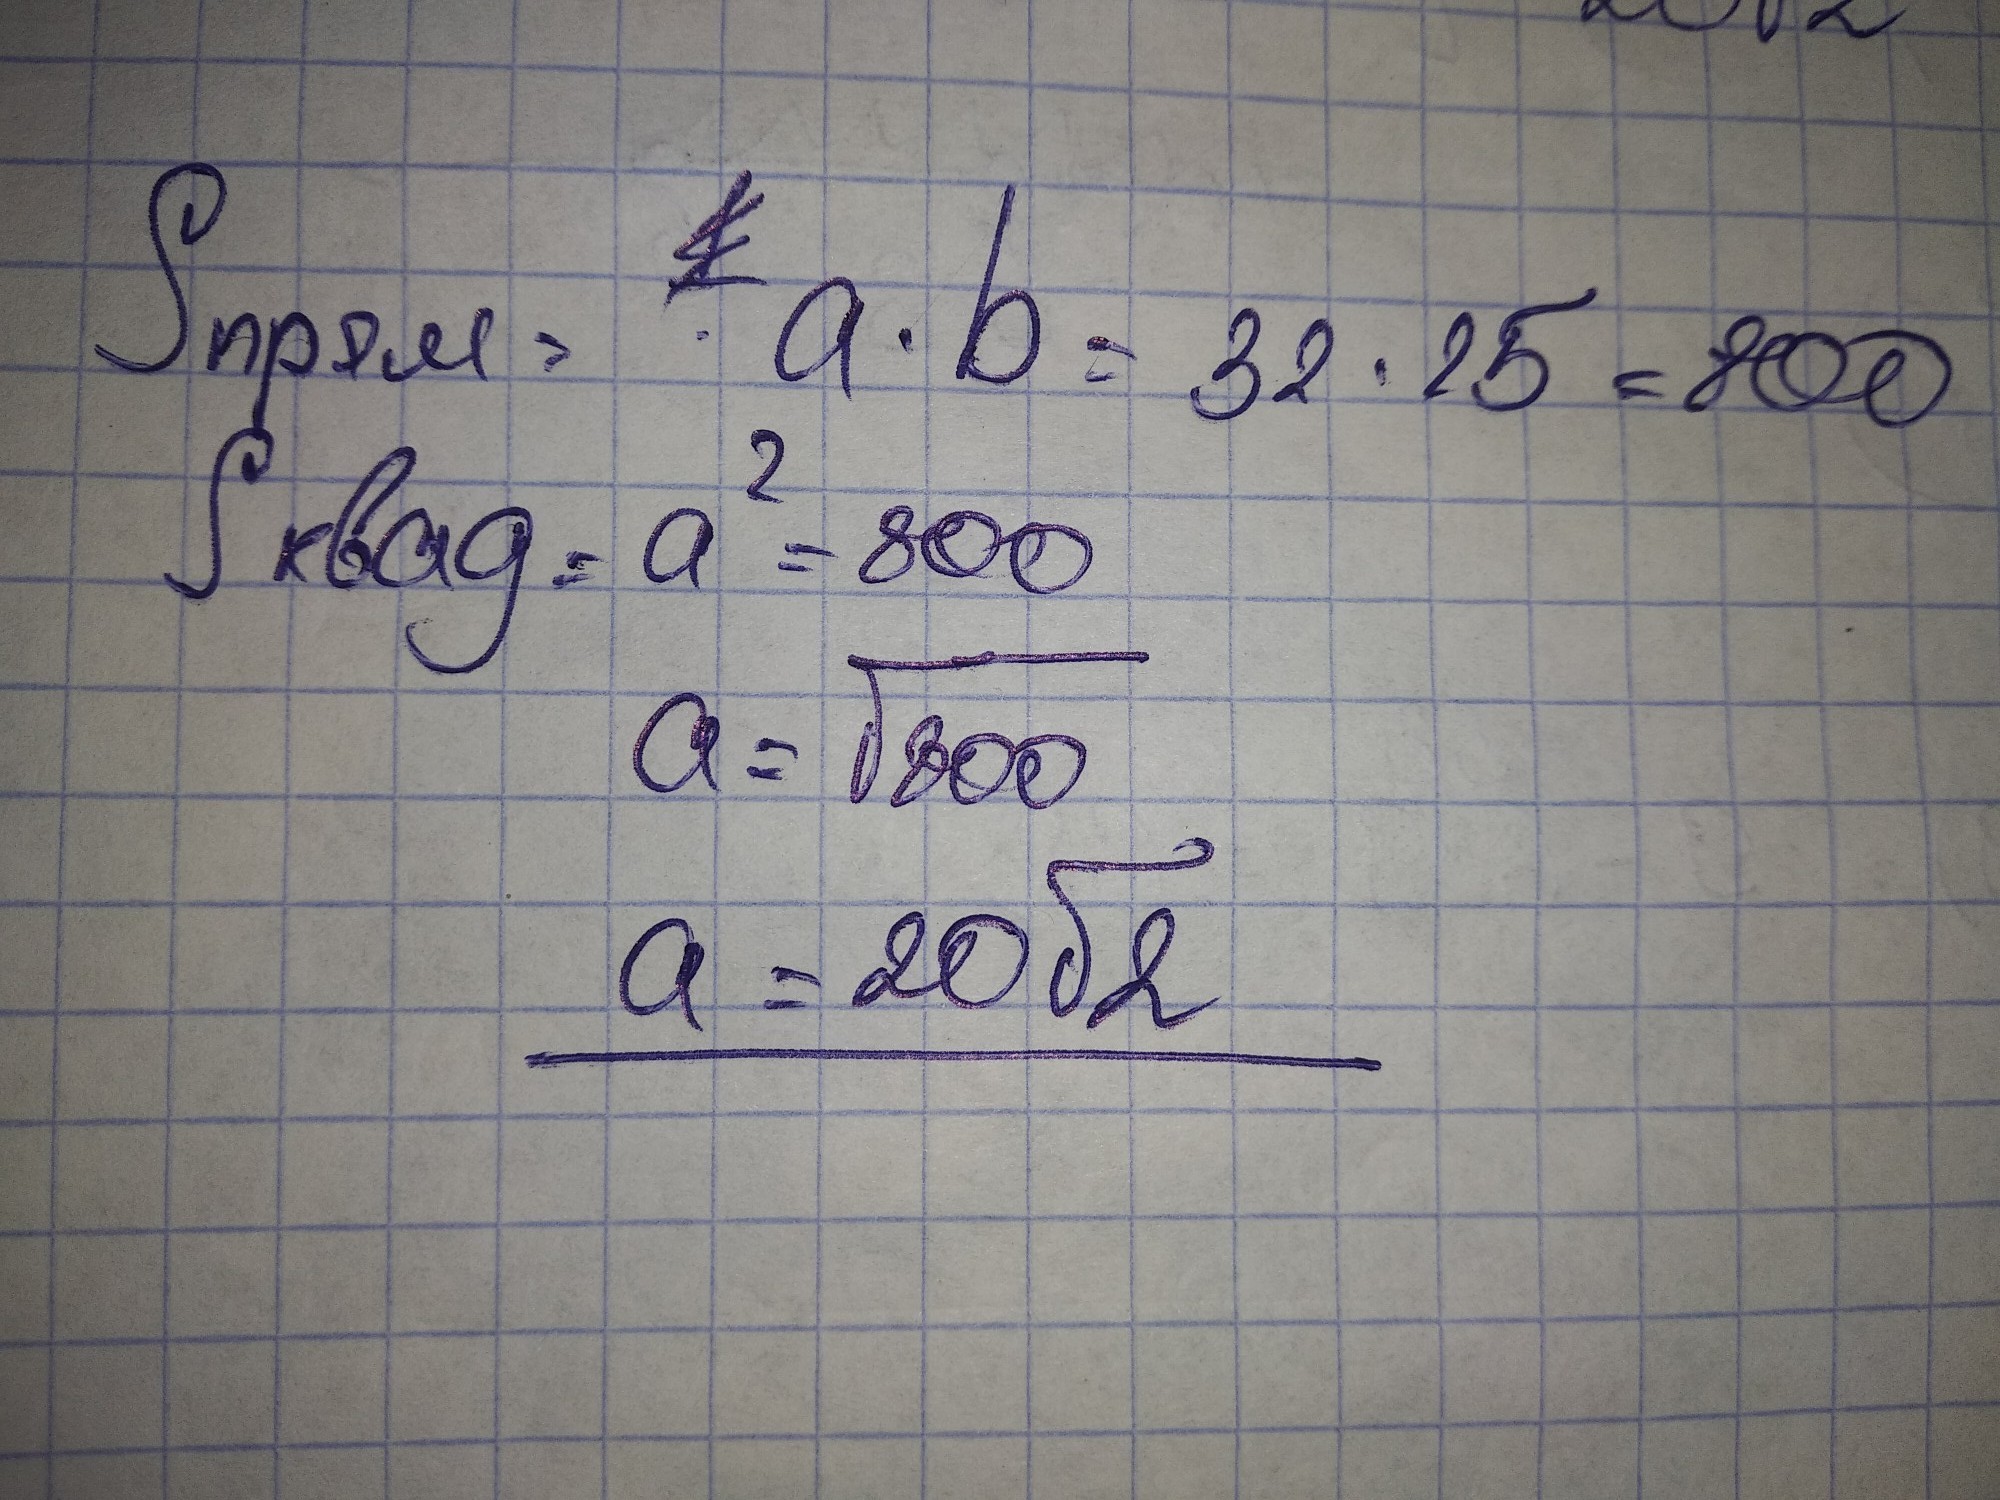 20√2
Sпрям = a · b = 32 · 25 = 800
Sквад = a² = 800
a = √800
a = 20√2